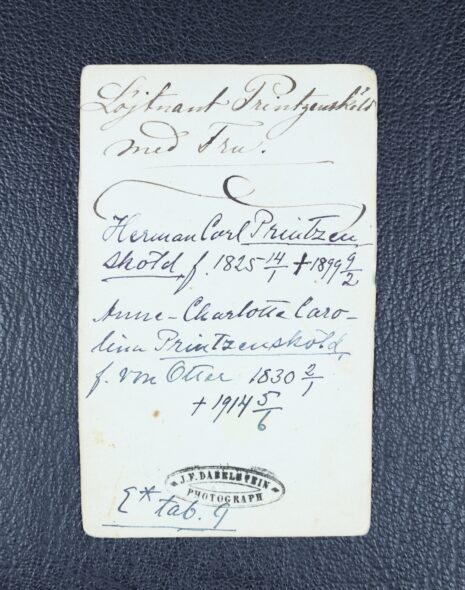 Löjtnant Printzensköld
med Fru.
Herman Carl Printzen
sköld f. 1825 14/1 † 1899 9/2
Anne-Charlotte Caro-
lina Printzensköld,
f. von Otter 1830 2/1
† 1914 5/6
J. F. DABELSTEIN
PHOTOGRAPH
tab. 9